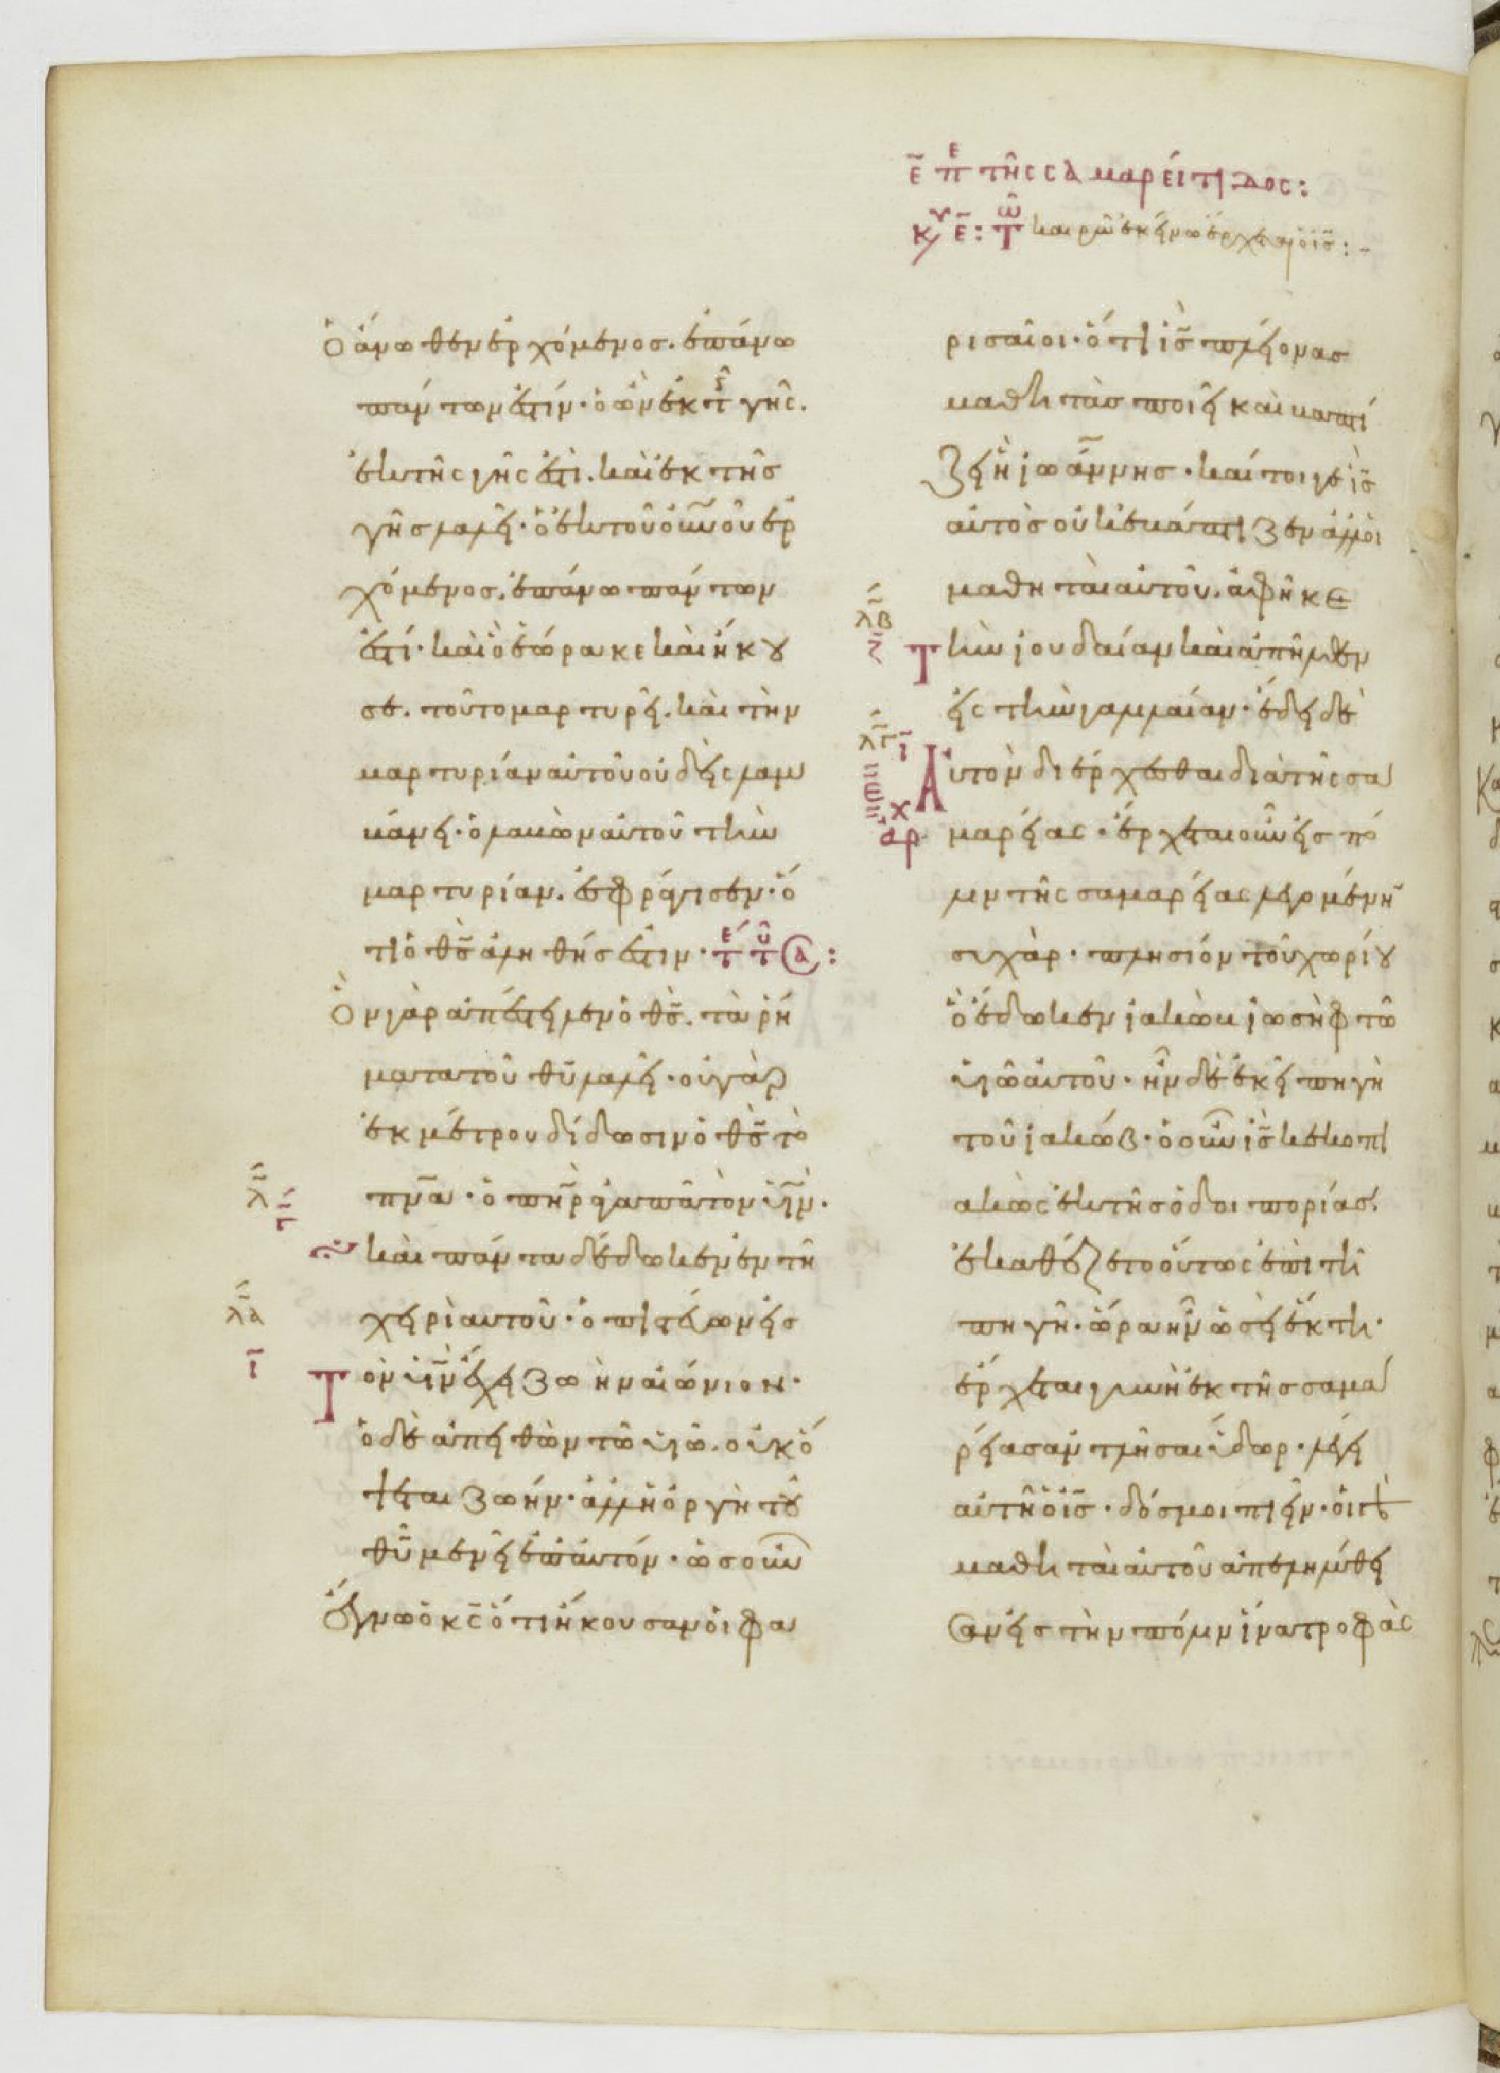 ε̄ π̅ε τῆς σαμαρείτιδος:
κυ ε̄: τ̅ῶ καιρῶ ἐκείνω ἔρχεται ὁ ις̅:-
Ὁ ἄνωθεν ἐρχόμενος. ἐπάνω
πάντων ἐστίν· ὁ ὢν ἐκ τ̅ῆς γῆς.
ἐκ τῆς γῆς ἐστὶ. καὶ ἐκ τῆς
γῆς λαλεῖ· ὁ ἐκ τοῦ οὐνοῦ ἐρ
χόμενος. ἐπάνω πάντων
ἐστί· καὶ ὃ ἑώρακε καὶ ἤκου
σε. τοῦτο μαρτυρεῖ. καὶ τὴν
μαρτυρίαν αὐτοῦ οὐδεὶς λαμ
βάνει· ὁ λαβὼν αὐτοῦ τὴν
μαρτυρίαν. ἐσφράγισεν· ὅ
τι ὁ θς̅ ἀληθής ἐστιν· τ̅έ τ̅ῦ α:
Ὃν γὰρ ἀπέστειλεν ὁ θς̅. τὰ ῥή
ματα τοῦ θῦ λαλεῖ· οὐ γὰρ
ἐκ μέτρου δίδωσιν ὁ θς̅ τὸ
πνα̅· ὁ πηρ̅ ἀγαπᾶ τὸν υἱν̅.
λ̅
γ̅
καὶ πάντα δέδωκεν ἐν τῆ
λα̅
χειρὶ αὐτοῦ· ὁ πιστεύων εἰς
ι̅
Τὸν υἱν̅ ἔχει ζωὴν αἰώνιον·
ὁ δὲ ἀπειθῶν τῶ υἱῶ. οὐκ ὄ
ψεται ζωήν· ἀλλ' ἡ ὀργὴ τοῦ
θῦ μενεῖ ἐπ' αὐτόν· ὡς οὖν
Ἔγνω ὁ κς̅ ὅτι ἤκουσαν οἱ φα
ρισαῖοι· ὅτι ις̅ πλείονας
μαθητὰς ποιεῖ καὶ βαπτί
ζει ἢ ἰωάννης· καίτοιγε ις̅
αὐτὸς οὐκ ἐβάπτιζεν ἀλλ' οἱ
μαθηταὶ αὐτοῦ. ἀφῆκε
λβ̅
ζ̅
Τὴν ἰουδαίαν καὶ ἀπῆλθεν
εἰς τὴν γαλιλαίαν· ἔδει δὲ
λγ̅ ι̅
Αὐτὸν διέρχεσθαι διὰ τῆς σα
αρχ
μαρείας· ἔρχεται οὖν εἰς πό
λιν τῆς σαμαρείας λεγομένην
συχὰρ· πλησιόν τοῦ χωρίου
ὃ ἔδωκεν ἰακὼβ ἰωσὴφ τῶ
υἱῶ αὐτοῦ· ἦν δὲ ἐκεῖ πηγὴ
τοῦ ἰακώβ· ὁ οὖν ις̅ κεκοπι
ακὼς ἐκ τῆς ὁδοιπορίας.
ἐκαθέζετο οὕτως ἐπὶ τῆ
πηγῆ· ὥρα ἦν ὡσεὶ ἕκτη·
ἔρχεται γυνὴ ἐκ τῆς σαμα
ρείας ἀντλῆσαι ὕδωρ· λέγει
αὐτῆ ὁ ις̅· δός μοι πιεῖν· οἱ γὰρ
μαθηταὶ αὐτοῦ ἀπεληλύθει
σαν εἰς τὴν πόλιν ἵνα τροφὰς